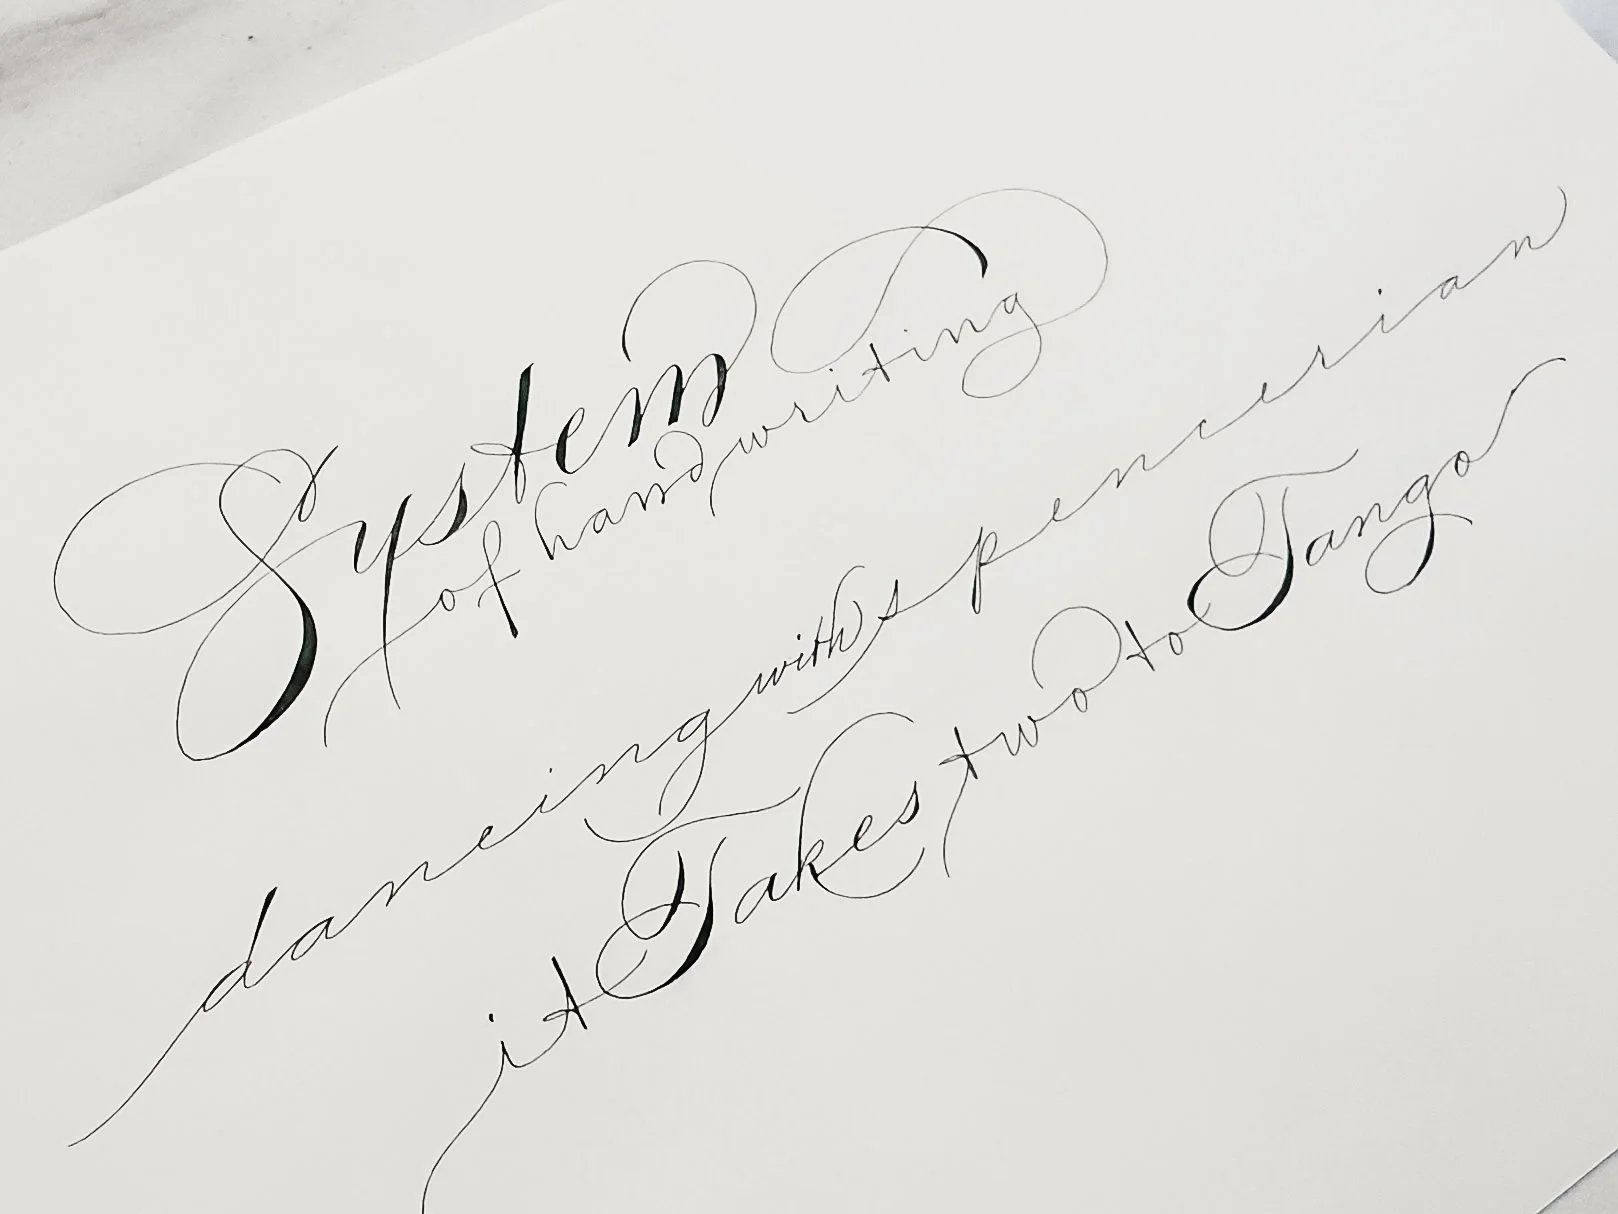 System
of handwriting
dancing with spencerian
it Takes two to Tango